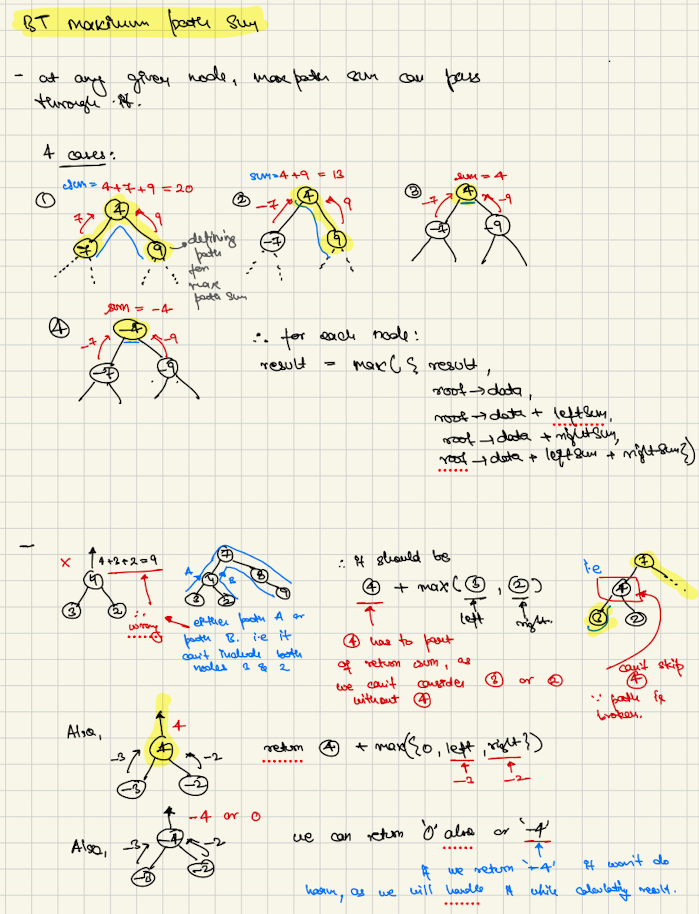 BT maximum path sum
- at any given node, max path sum can pass
through it.
4 cases:
① sum = 4+7+9 = 20
4
7
9
7
9
defining
path
for
max
path sum
② sum = 4+9 = 13
4
-7
9
-7
9
③ sum = 4
4
-7
-9
-7
-9
④ sum = -4
-4
-7
-9
-7
-9
∴ for each node:
result = max({ result,
root→data,
root→data + leftsum,
root→data + rightsum,
root→data + leftsum + rightsum})
-
x
4+3+2=9
4
3
2
∴ wrong
7
A
4
B
8
3
2
9
either path A or
path B. i.e it
can't include both
nodes 3 & 2
∴ it should be
④ + max(③, ②)
left
right
④ has to part
of return sum, as
we can't consider ③ or ②
without ④
i.e
7
4
3
2
can't skip
④
∵ path is
broken.
Also,
4
4
-3
-2
-3
-2
return ④ + max({0, left, right})
-3
-2
Also,
-4 or 0
-4
-3
-2
-3
-2
we can return '0' also or '-4'
if we return '-4' it won't do
harm, as we will handle it while calculating result.